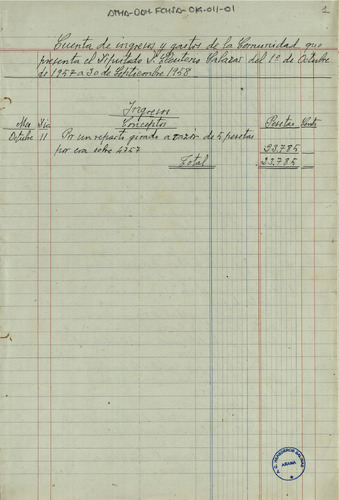 ATHA-DDH-FCHSD-CM-011-01
1
Cuenta de ingresos y gastos de la Comunidad que
presenta el Diputado D. Eleuterio Salazar del 1º de Octubre
de 1957 a 30 de Septiembre 1958
Ingresos
Mes Dia Conceptos Pesetas Cents
Octubre 11 Por un reparto girado a razón de 5 pesetas
por era sobre 4757 23.785
Total 23.785
ARABA